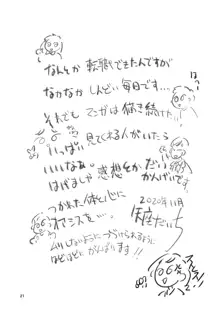 なんとか転職できたんですが
なかなかしんどい毎日です…
それでもマンガは描き続けた!!
いっぱい見てくれる人がいたら
いいなぁ。
はげましや感想とかだいかんげいです。
つかれた体と心に
オマ○スを…
2020年11月
座だいち
ムリしないようにつづけられるように
ほどほどにがんばります!!
21